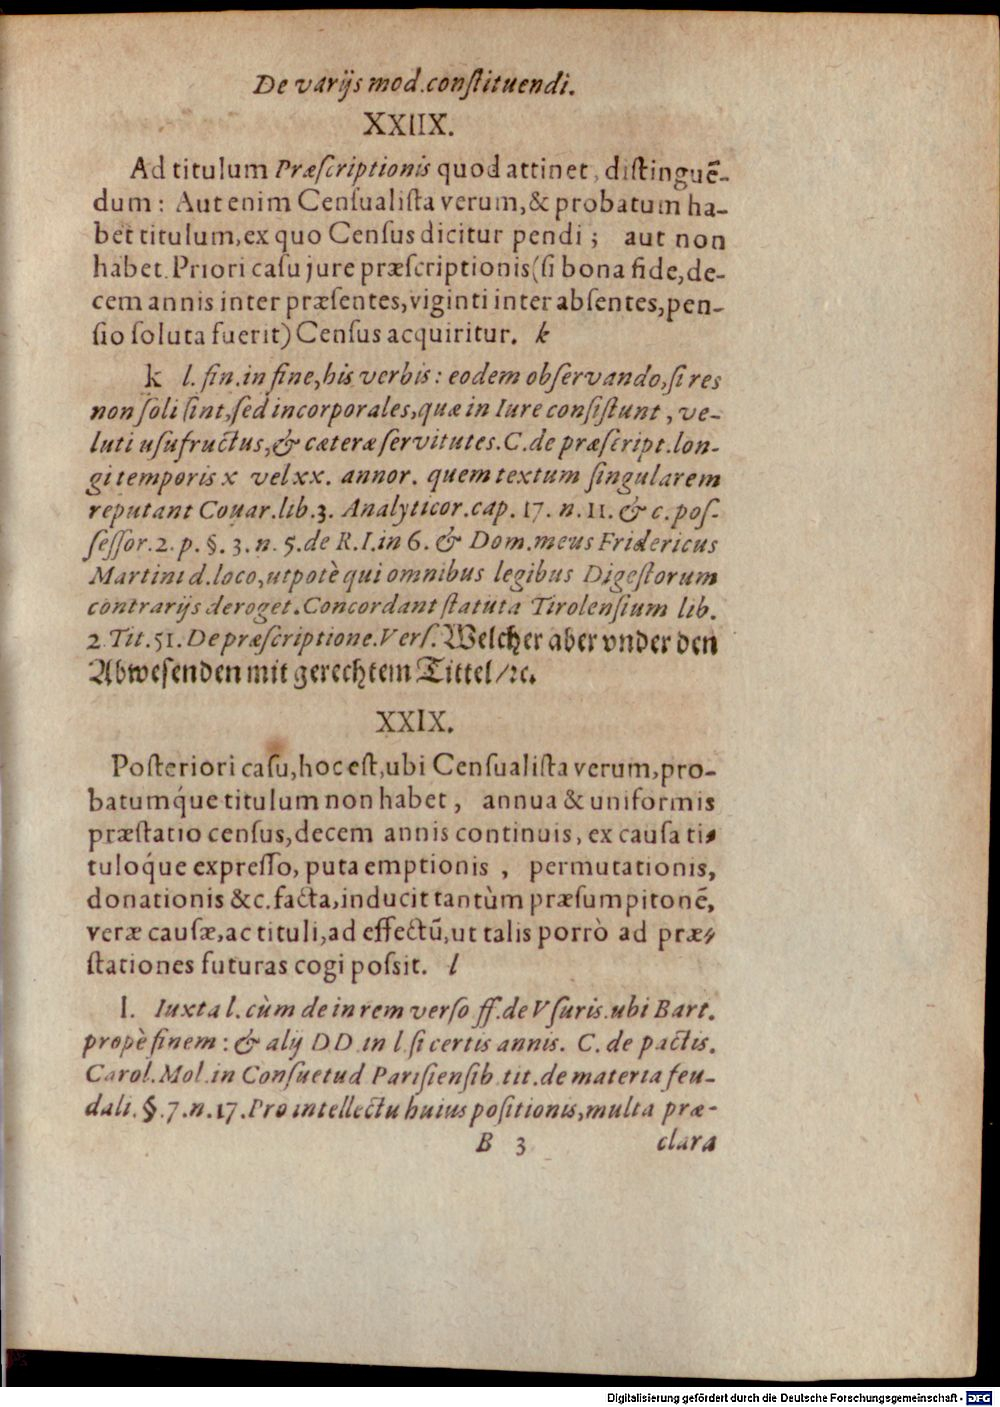 De varijs mod. conſtituendi.
XXIIX.
Ad titulum Præſcriptionis quod attinet, diſtinguẽ-
dum: Aut enim Cenſualiſta verum, & probatum ha-
bet titulum, ex quo Cenſus dicitur pendi; aut non
habet. Priori caſu jure præſcriptionis (ſi bona fide, de-
cem annis inter præſentes, viginti inter abſentes, pen-
ſio ſoluta fuerit) Cenſus acquiritur. k
k l. fin. in fine, his verbis: eodem obſervando, ſi res
non ſoli ſint, ſed incorporales, quæ in Iure conſiſtunt, ve-
luti uſufructus, & cæteræ ſervitutes. C. de præſcript. lon-
gi temporis x vel xx. annor. quem textum ſingularem
reputant Couar. lib. 3. Analyticor. cap. 17. n. 11. & c. poſ-
ſeſſor. 2. p. §. 3. n. 5. de R. I. in 6. & Dom. meus Fridericus
Martini d. loco, utpotè qui omnibus legibus Digeſtorum
contrarijs deroget. Concordant ſtatuta Tirolenſium lib.
2. Tit. 51. De præſcriptione. Verſ. Welcher aber vnder den
Abweſenden mit gerechtem Tittel / ꝛc.
XXIX.
Poſteriori caſu, hoc eſt, ubi Cenſualiſta verum, pro-
batumq́ue titulum non habet, annua & uniformis
præſtatio cenſus, decem annis continuis, ex cauſa ti-
tuloq́ue expreſſo, puta emptionis, permutationis,
donationis &c. facta, inducit tantùm præſumpitonẽ,
veræ cauſæ, ac tituli, ad effectũ, ut talis porrò ad præ-
ſtationes futuras cogi poſsit. l
l. Iuxta l. cùm de in rem verſo ff. de Vſuris. ubi Bart.
propè finem: & alij DD. in l. ſi certis annis. C. de pactis.
Carol. Mol. in Conſuetud Pariſienſib. tit. de materia feu-
dali. §. 7. n. 17. Pro intellectu huius poſitionis, multa præ-
B 3 clara
Digitalisierung gefördert durch die Deutsche Forschungsgemeinschaft - DFG